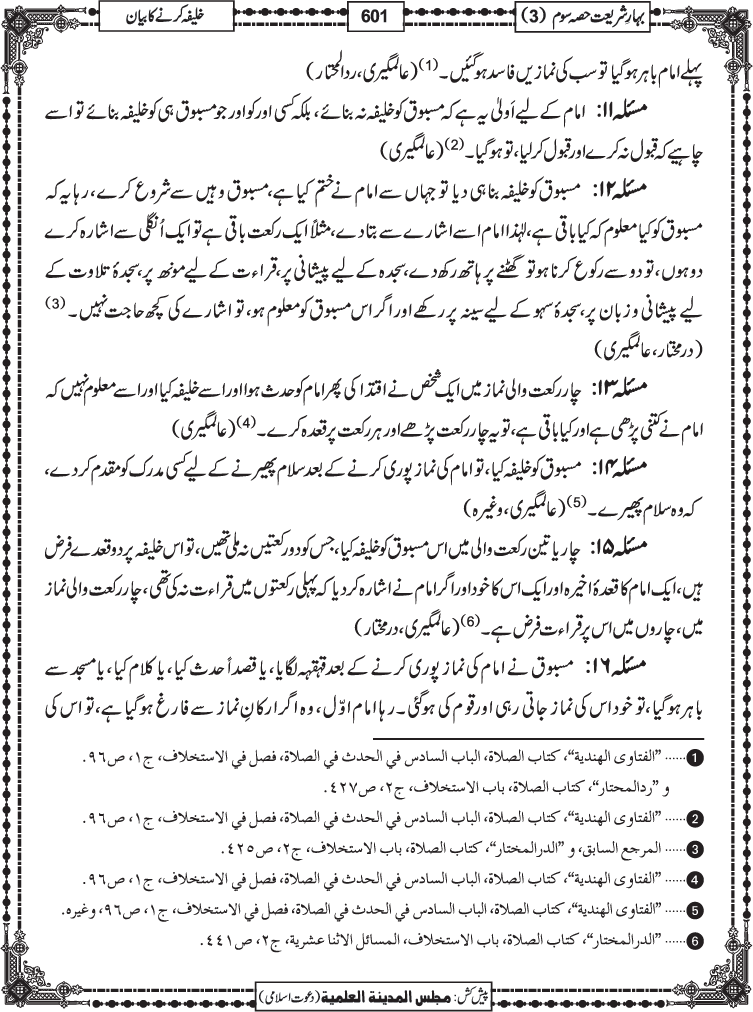 بہار شریعت حصہ سوم (3)
601
خلیفہ کرنے کا بیان
پہلے امام باہر ہوگیا تو سب کی نمازیں فاسد ہوگئیں۔(1) (عالمگیری، ردالمحتار)
مسئلہ ۱۱: امام کے لیے اَولیٰ یہ ہے کہ مسبوق کو خلیفہ نہ بنائے، بلکہ کسی اور کو اور جو مسبوق ہی کو خلیفہ بنائے تو اسے
چاہیے کہ قبول نہ کرے اور قبول کرلیا، تو ہوگیا۔(2) (عالمگیری)
مسئلہ ۱۲: مسبوق کو خلیفہ بنا ہی دیا تو جہاں سے امام نے ختم کیا ہے، مسبوق وہیں سے شروع کرے، رہا یہ کہ
مسبوق کو کیا معلوم کہ کیا باقی ہے، لہٰذا امام اسے اشارے سے بتادے، مثلاً ایک رکعت باقی ہے تو ایک اُنگلی سے اشارہ کرے
دو ہوں، تو دو سے رکوع کرنا ہو تو گھٹنے پر ہاتھ رکھ دے، سجدہ کے لیے پیشانی پر، قراءت کے لیے مونھ پر، سجدۂ تلاوت کے
لیے پیشانی و زبان پر، سجدۂ سہو کے لیے سینہ پر رکھے اور اگر اس مسبوق کو معلوم ہو، تو اشارے کی کچھ حاجت نہیں۔(3)
(درمختار، عالمگیری)
مسئلہ ۱۳: چار رکعت والی نماز میں ایک شخص نے اقتدا کی پھر امام کو حدث ہوا اور اسے خلیفہ کیا اور اسے معلوم نہیں کہ
امام نے کتنی پڑھی ہے اور کیا باقی ہے، تو یہ چار رکعت پڑھے اور ہر رکعت پر قعدہ کرے۔(4) (عالمگیری)
مسئلہ ۱۴: مسبوق کو خلیفہ کیا، تو امام کی نماز پوری کرنے کے بعد سلام پھیرنے کے لیے کسی مدرک کو مقدم کردے،
کہ وہ سلام پھیرے۔(5) (عالمگیری، وغیرہ)
مسئلہ ۱۵: چار یا تین رکعت والی میں اس مسبوق کو خلیفہ کیا، جس کو دو رکعتیں نہ ملی تھیں، تو اس خلیفہ پر دو قعدے فرض
ہیں، ایک امام کا قعدۂ اخیرہ اور ایک اس کا خود اور اگر امام نے اشارہ کردیا کہ پہلی رکعتوں میں قراءت نہ کی تھی، چار رکعت والی نماز
میں، چاروں میں اس پر قراءت فرض ہے۔(6) (عالمگیری، درمختار)
مسئلہ ۱۶: مسبوق نے امام کی نماز پوری کرنے کے بعد قہقہہ لگایا، یا قصداً حدث کیا، یا کلام کیا، یا مسجد سے
باہر ہوگیا، تو خود اس کی نماز جاتی رہی اور قوم کی ہوگئی۔ رہا امام اوّل، وہ اگر ارکانِ نماز سے فارغ ہوگیا ہے، تو اس کی
1 ...... "الفتاوی الهندية"، كتاب الصلاة، الباب السادس في الحدث في الصلاة، فصل في الاستخلاف، ج۱، ص۹۶.
و "ردالمحتار"، كتاب الصلاة، باب الاستخلاف، ج۲، ص۴۲۷.
2 ...... "الفتاوی الهندية"، كتاب الصلاة، الباب السادس في الحدث في الصلاة، فصل في الاستخلاف، ج۱، ص۹۶.
3 ...... المرجع السابق، و "الدرالمختار"، كتاب الصلاة، باب الاستخلاف، ج۲، ص۴۲۵.
4 ...... "الفتاوی الهندية"، كتاب الصلاة، الباب السادس في الحدث في الصلاة، فصل في الاستخلاف، ج۱، ص۹۶.
5 ...... "الفتاوی الهندية"، كتاب الصلاة، الباب السادس في الحدث في الصلاة، فصل في الاستخلاف، ج۱، ص۹۶، وغيره.
6 ...... "الدرالمختار"، كتاب الصلاة، باب الاستخلاف، المسائل الاثنا عشرية، ج۲، ص۴۴۱.
پیش کش: مجلس المدينة العلمية (دعوتِ اسلامی)